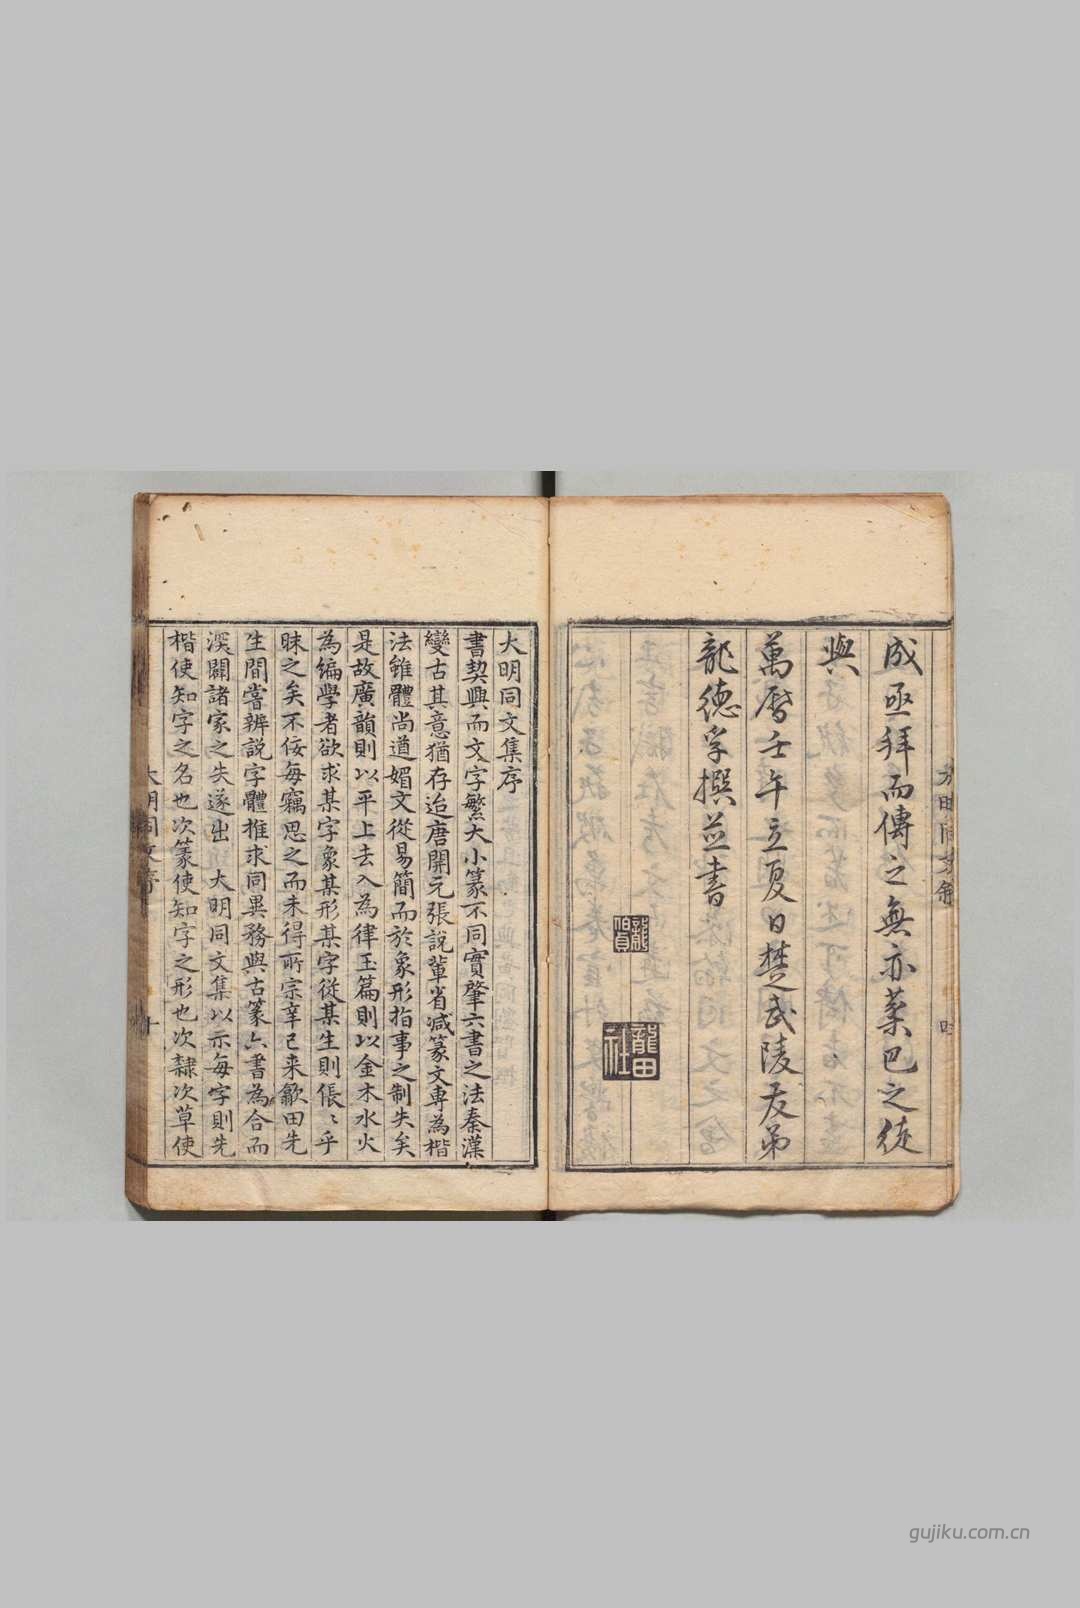 成亟拜而傳之無亦葉巴之徒
與
萬曆壬午立夏日楚武陵友弟
龍德孚撰並書
龍田
社
大明同文集序
書契興而文字繁大小篆不同實肇六書之法秦漢
變古其意猶存迨唐開元張說輩省減篆文專為楷
法雖體尚遒媚文從易簡而於象形指事之制失矣
是故廣韻則以平上去入為律玉篇則以金木水火
為編學者欲求某字象某形某字從某生則倀〻乎
昧之矣不佞每竊思之而未得所宗辛巳來歙田先
生間嘗辨說字體推求同異務與古篆六書為合而
深闢諸家之失遂出 大明同文集以示每字則先
楷使知字之名也次篆使知字之形也次隸次草使
大明同文序
gujiku.com.cn